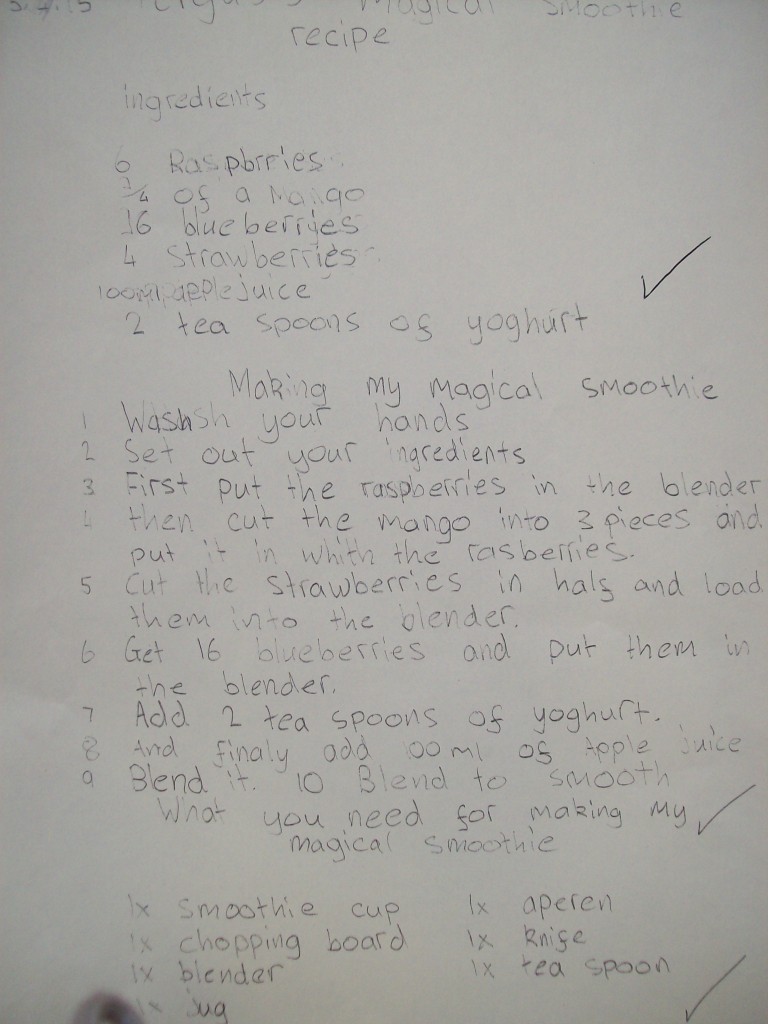 Magical Smoothie
recipe
ingredients
6 Raspbrries
3/4 of a Mango
16 blueberriyes
4 Strawberries
100ml apple juice
2 tea spoons of yoghurt
Making my magical smoothie
1 Washsh your hands
2 Set out your ingredients
3 First put the raspberries in the blender
4 then cut the mango into 3 pieces and
put it in whith the rasberries.
5 Cut the Strawberries in half and load
them into the blender.
6 Get 16 blueberries and put them in
the blender.
7 Add 2 tea spoons of yoghurt.
8 And finaly add 00ml of Apple juice
9 Blend it. 10 Blend to smooth
What you need for making my
magical smoothie
1x smoothie cup 1x aperen
1x chopping board 1x knife
1x blender 1x tea spoon
1x jug